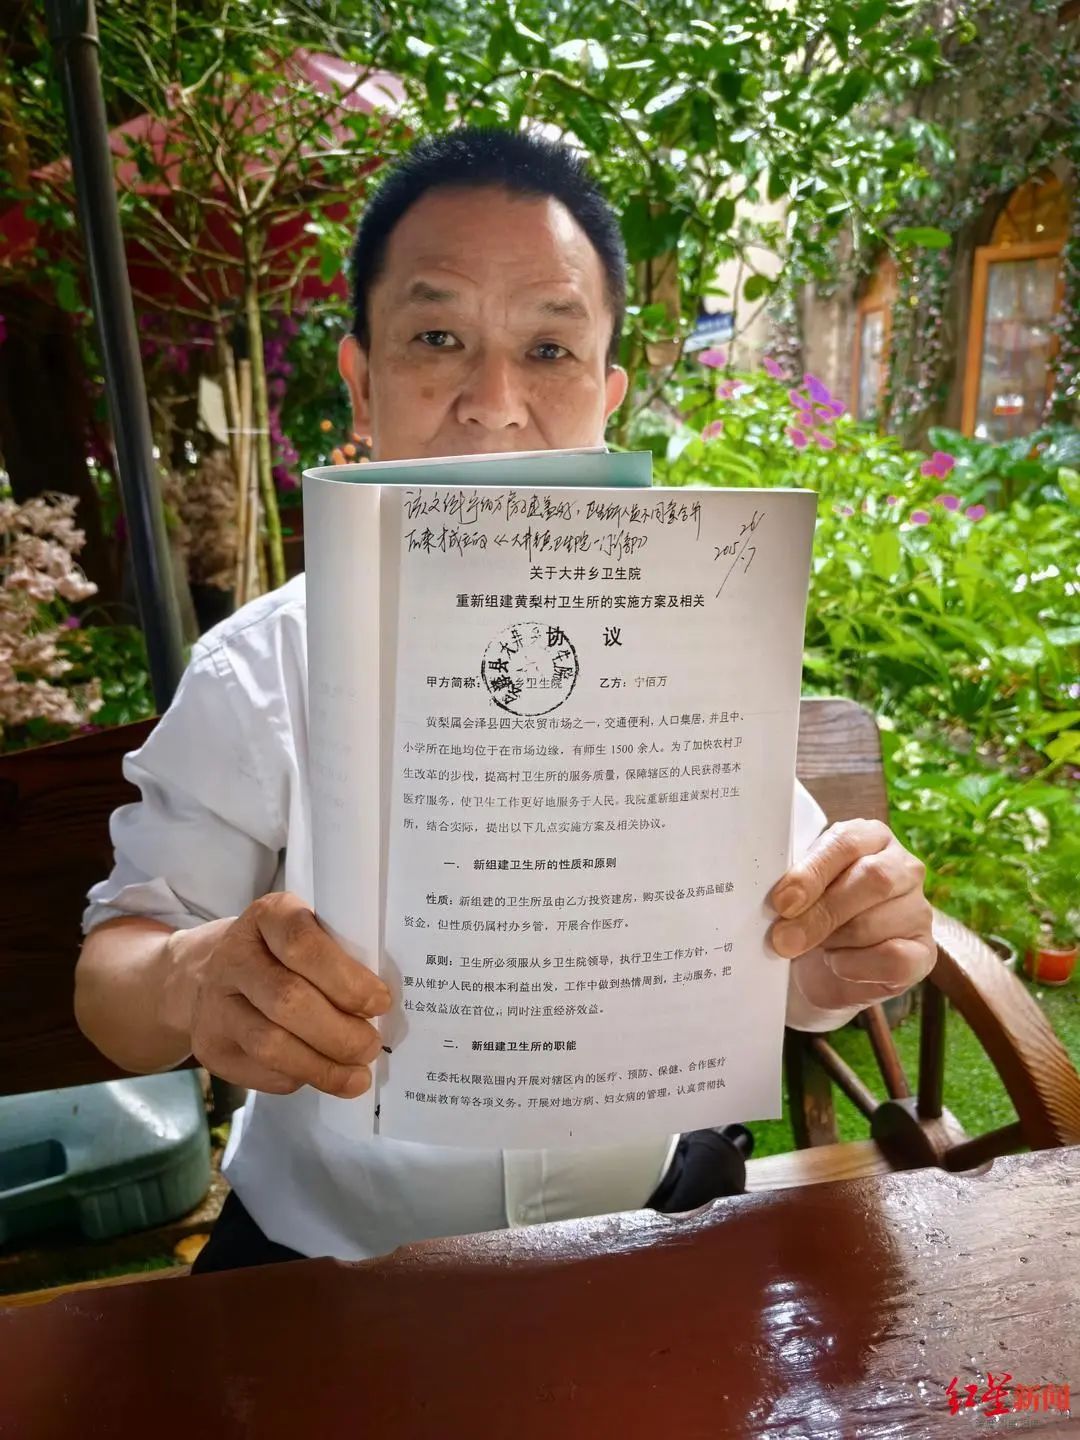 2015.7
关于大井乡卫生院
重新组建黄梨村卫生所的实施方案及相关
协 议
甲方简称: 乡卫生院 乙方: 宁佰万
黄梨属会泽县四大农贸市场之一，交通便利，人口集居，并且中、
小学所在地均位于在市场边缘，有师生 1500 余人。为了加快农村卫
生改革的步伐，提高村卫生所的服务质量，保障辖区的人民获得基本
医疗服务，使卫生工作更好地服务于人民。我院重新组建黄梨村卫生
所，结合实际，提出以下几点实施方案及相关协议。
一． 新组建卫生所的性质和原则
性质：新组建的卫生所虽由乙方投资建房，购买设备及药品铺垫
资金，但性质仍属村办乡管，开展合作医疗。
原则：卫生所必须服从乡卫生院领导，执行卫生工作方针，一切
要从维护人民的根本利益出发，工作中做到热情周到，主动服务，把
社会效益放在首位，同时注重经济效益。
二． 新组建卫生所的职能
在委托权限范围内开展对辖区内的医疗、预防、保健、合作医疗
和健康教育等各项义务。开展对地方病、妇女病的管理，认真贯彻执
1
红星新闻